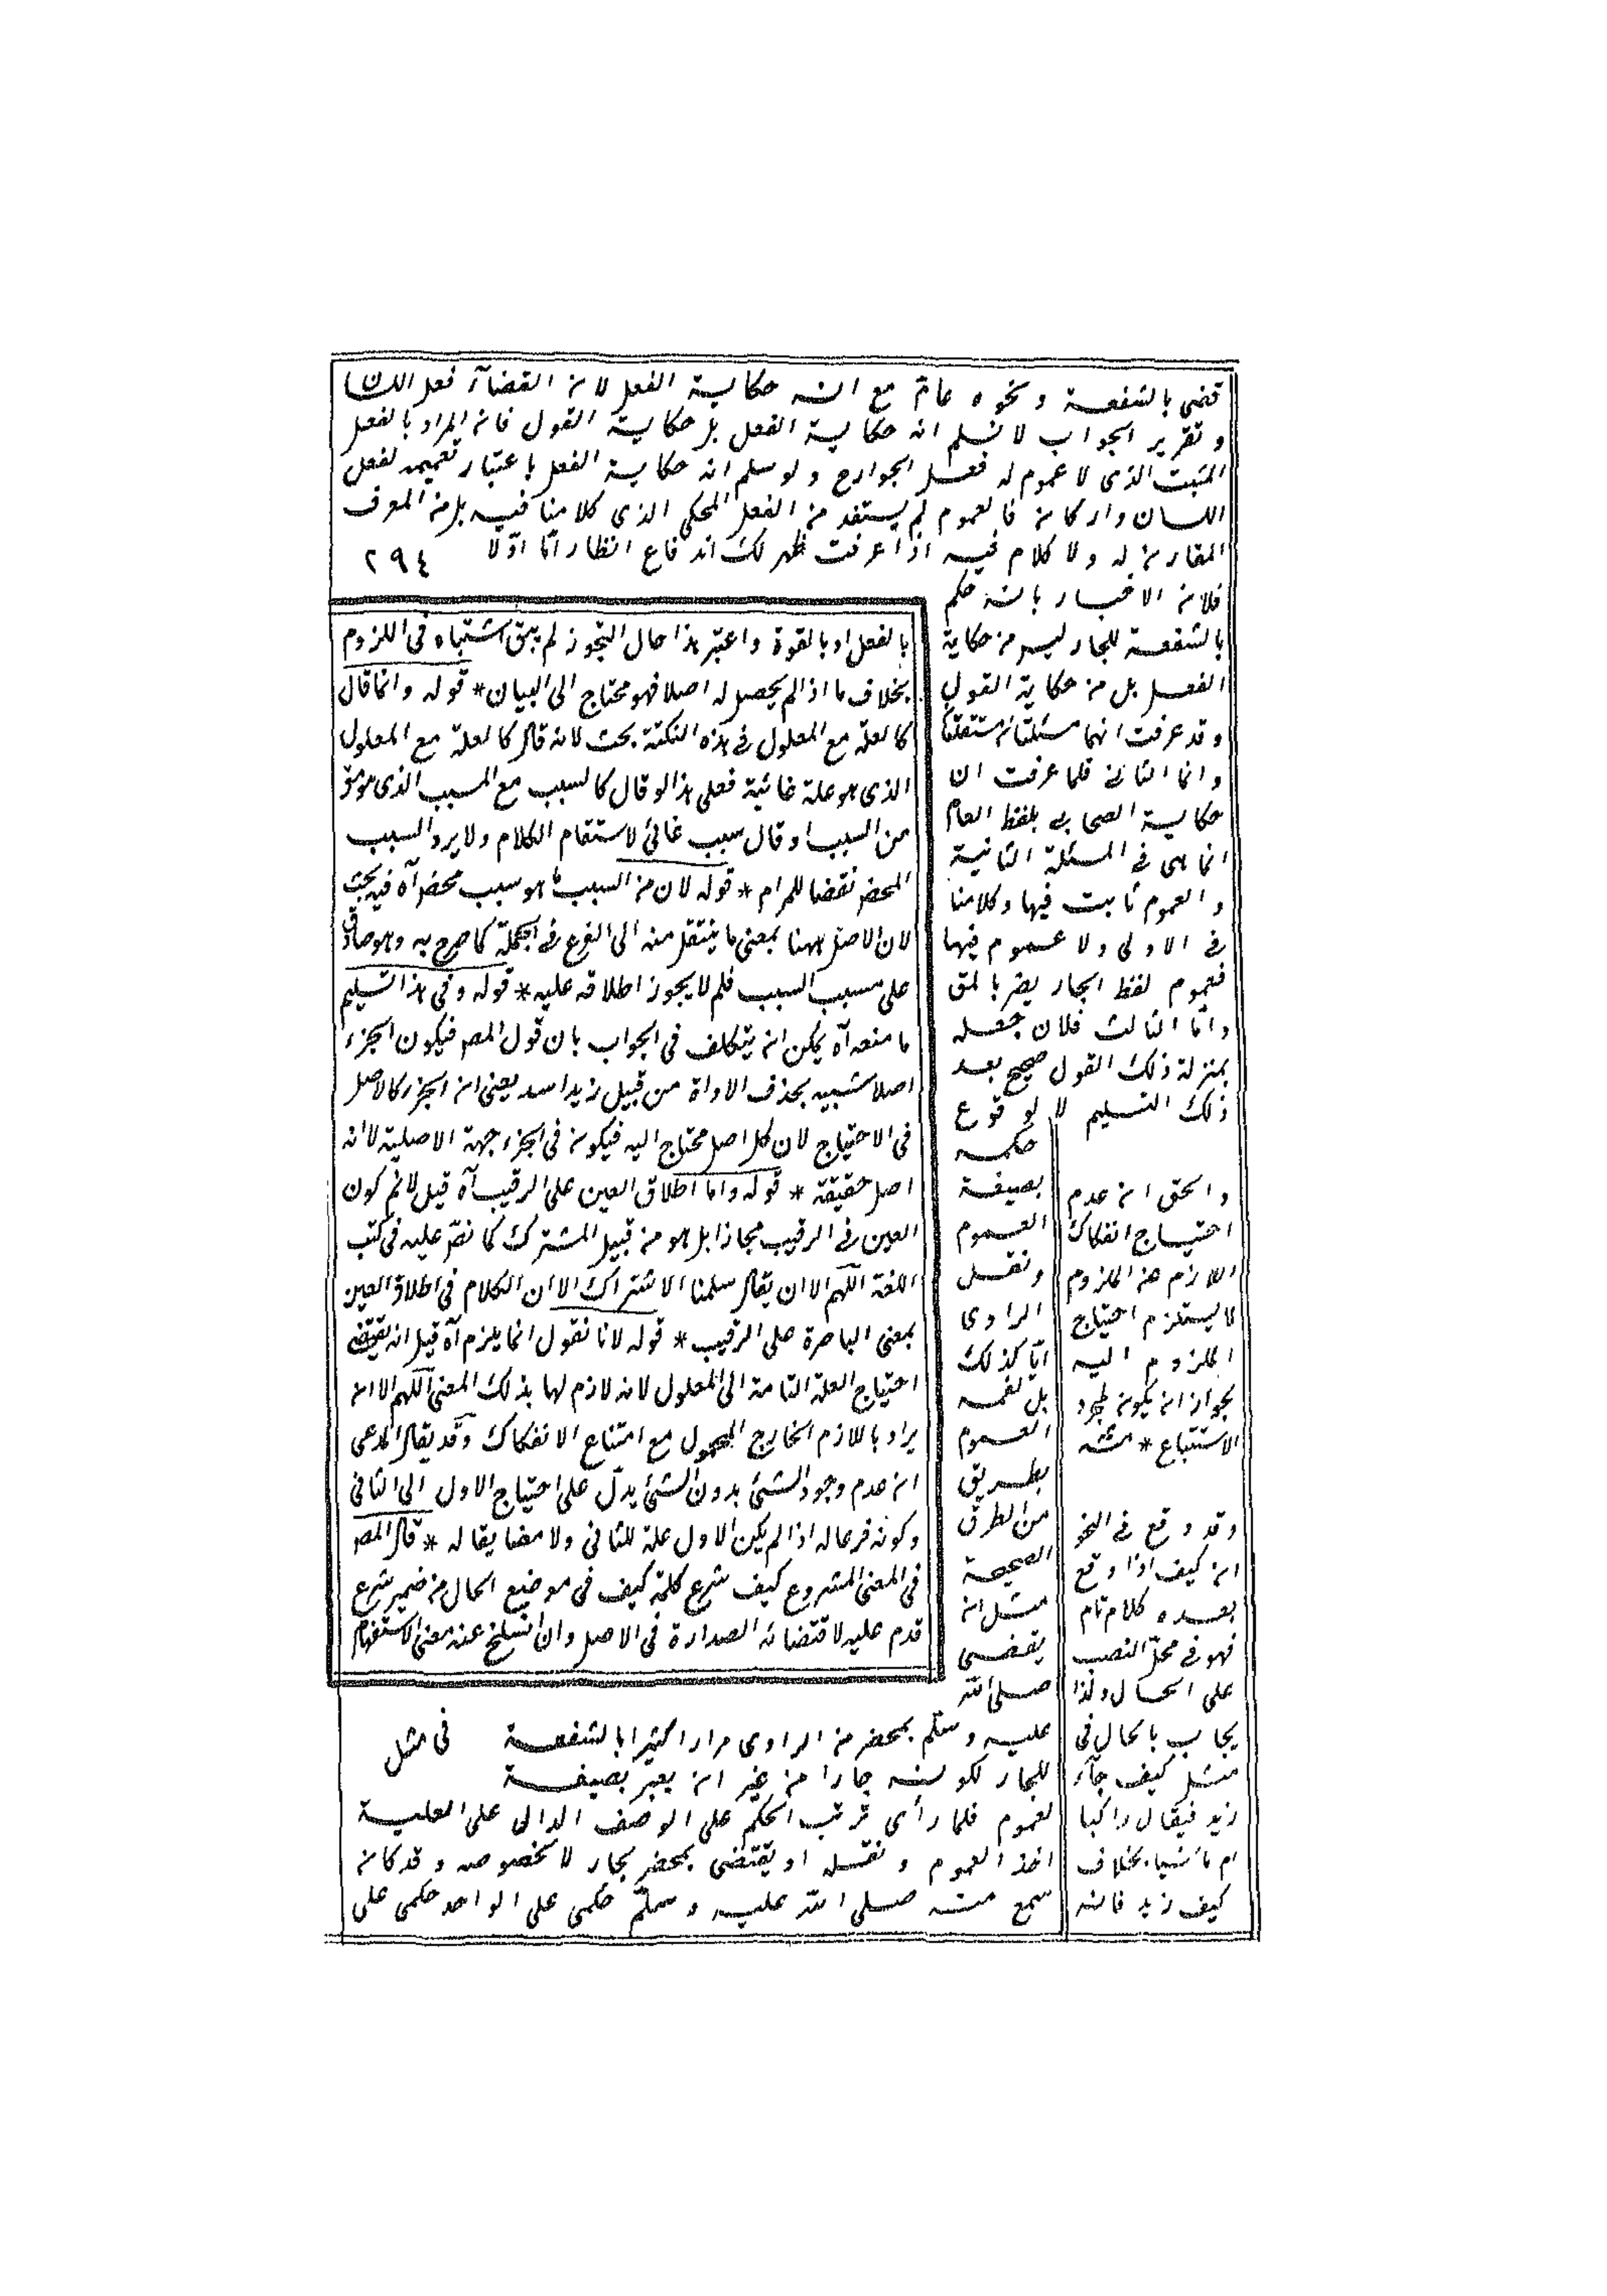 قضى بالشفعة ونحوه عام مع انه حكاية الفعل لان القضاء فعل اللسان
وتقرير الجواب لا نسلم انه حكاية الفعل بل حكاية القول فان المراد بالفعل
المثبت الذى لا عموم له فعل الجوارح ولو سلم انه حكاية الفعل باعتبار تعميمه لفعل
اللسان والاركان فالعموم لم يستفد من الفعل المحكى الذى كلامنا فيه بل من المعرف
المقارن له ولا كلام فيه اذا عرفت ظهر لك اندفاع انظار امّا اوّلا
٢٩٤
فلان الاخبار بانه حكم
بالشفعة للجار ليس من حكاية
الفعل بل من حكاية القول
وقد عرفت انهما مسئلتان مستقلتا
وامّا الثانى فلما عرفت ان
حكاية الصحابى بلفظ العام
انما هى فى المسئلة الثانية
والعموم ثابت فيها وكلامنا
فى الاولى ولا عموم فيها
فعموم لفظ الجار يضر بالمق
وامّا الثالث فلان جعله
بمنزلة ذلك القول صحيح بعد
ذلك التسليم لا لوقوع
حكمه
بصيغة
العموم
ونقل
الراوى
ايّا كذلك
بل لفهمه
العموم
بطريق
من الطرق
الصحيحة
مثل انه
يقضى
صلى الله
عليه وسلم بمحضر من الراوى مرارا كثيرا بالشفعة
للجار لكونه جارا من غير ان يعبّر بصيغة
لعموم فلما رأى ترتب الحكم على الوصف الدال على العلية
اخذ العموم ونقله او يقتضى بمحضر بجار لا بخصوصه وقد كان
سمع منه صلى الله عليه وسلم حكمى على الواحد حكمى على
بالفعل او بالقوة واعتبر هذا حال التجوز لم يبق اشتباه فى اللزوم
بخلاف ما اذا لم يحصل له اصلا فهو محتاج الى البيان * قوله وانما قال
كالعلة مع المعلول فى هذه النكتة بحث لانه قال كالعلة مع المعلول
الذى هو علة غائية فعلى هذا لو قال كالسبب مع المسبب الذى هو مق
من السبب او قال سبب غائى لاستقام الكلام ولا يرد السبب
المحض نقضا للمرام * قوله لان من السبب ما هو سبب محض آه فيه بحث
لان الاصل ههنا بمعنى ما ينتقل منه الى الفرع فى الجملة كما صرح به وهو صادق
على مسبب السبب فلم لا يجوز اطلاقه عليه * قوله وفى هذا تسليم
ما منعه آه يمكن ان يتكلف فى الجواب بان قول المص فيكون الجزء
اصلا تشبيه بحذف الاداة من قبيل زيد اسد يعنى ان الجزء كالاصل
فى الاحتياج لان كل اصل محتاج اليه فيكون فى الجزء جهة الاصلية لا انه
اصل حقيقة * قوله واما اطلاق العين على الرقيب آه قيل لا نم كون
العين فى الرقيب مجازا بل هو من قبيل المشترك كما نصّ عليه فى كتب
اللغة اللهم الا ان يقال سلمنا الاشتراك الا ان الكلام فى اطلاق العين
بمعنى الباصرة على الرقيب * قوله لانا نقول انما يلزم آه قيل انه يقتضى
احتياج العلة التامة الى المعلول لانه لازم لها بذلك المعنى اللهم الا ان
يراد باللازم الخارج المحمول مع امتناع الانفكاك وقد يقال المدعى
ان عدم وجود الشئ بدون الشئ يدلّ على احتياج الاول الى الثانى
وكونه فرعا له اذا لم يكن الاول علة للثانى ولا مضايقا له * قال المص
فى المعنى المشروع كيف شرع كلمة كيف فى موضع الحال من ضمير شرع
قدم عليه لاقتضائه الصدارة فى الاصل وان انسلخ عنه معنى الاستفهام
فى مثل
والحق ان عدم
احتياج انفكاك
اللازم عن الملزوم
لا يستلزم احتياج
الملزوم اليه
لجواز ان يكون لمجرد
الاستتباع * منه
وقد وقع فى النحو
ان كيف اذا وقع
بعده كلام تام
فهو فى محلّ النصب
على الحال ولذا
يجاب بالحال فى
مثل كيف جاء
زيد فيقال راكبا
ام ماشيا بخلاف
كيف زيد فانه